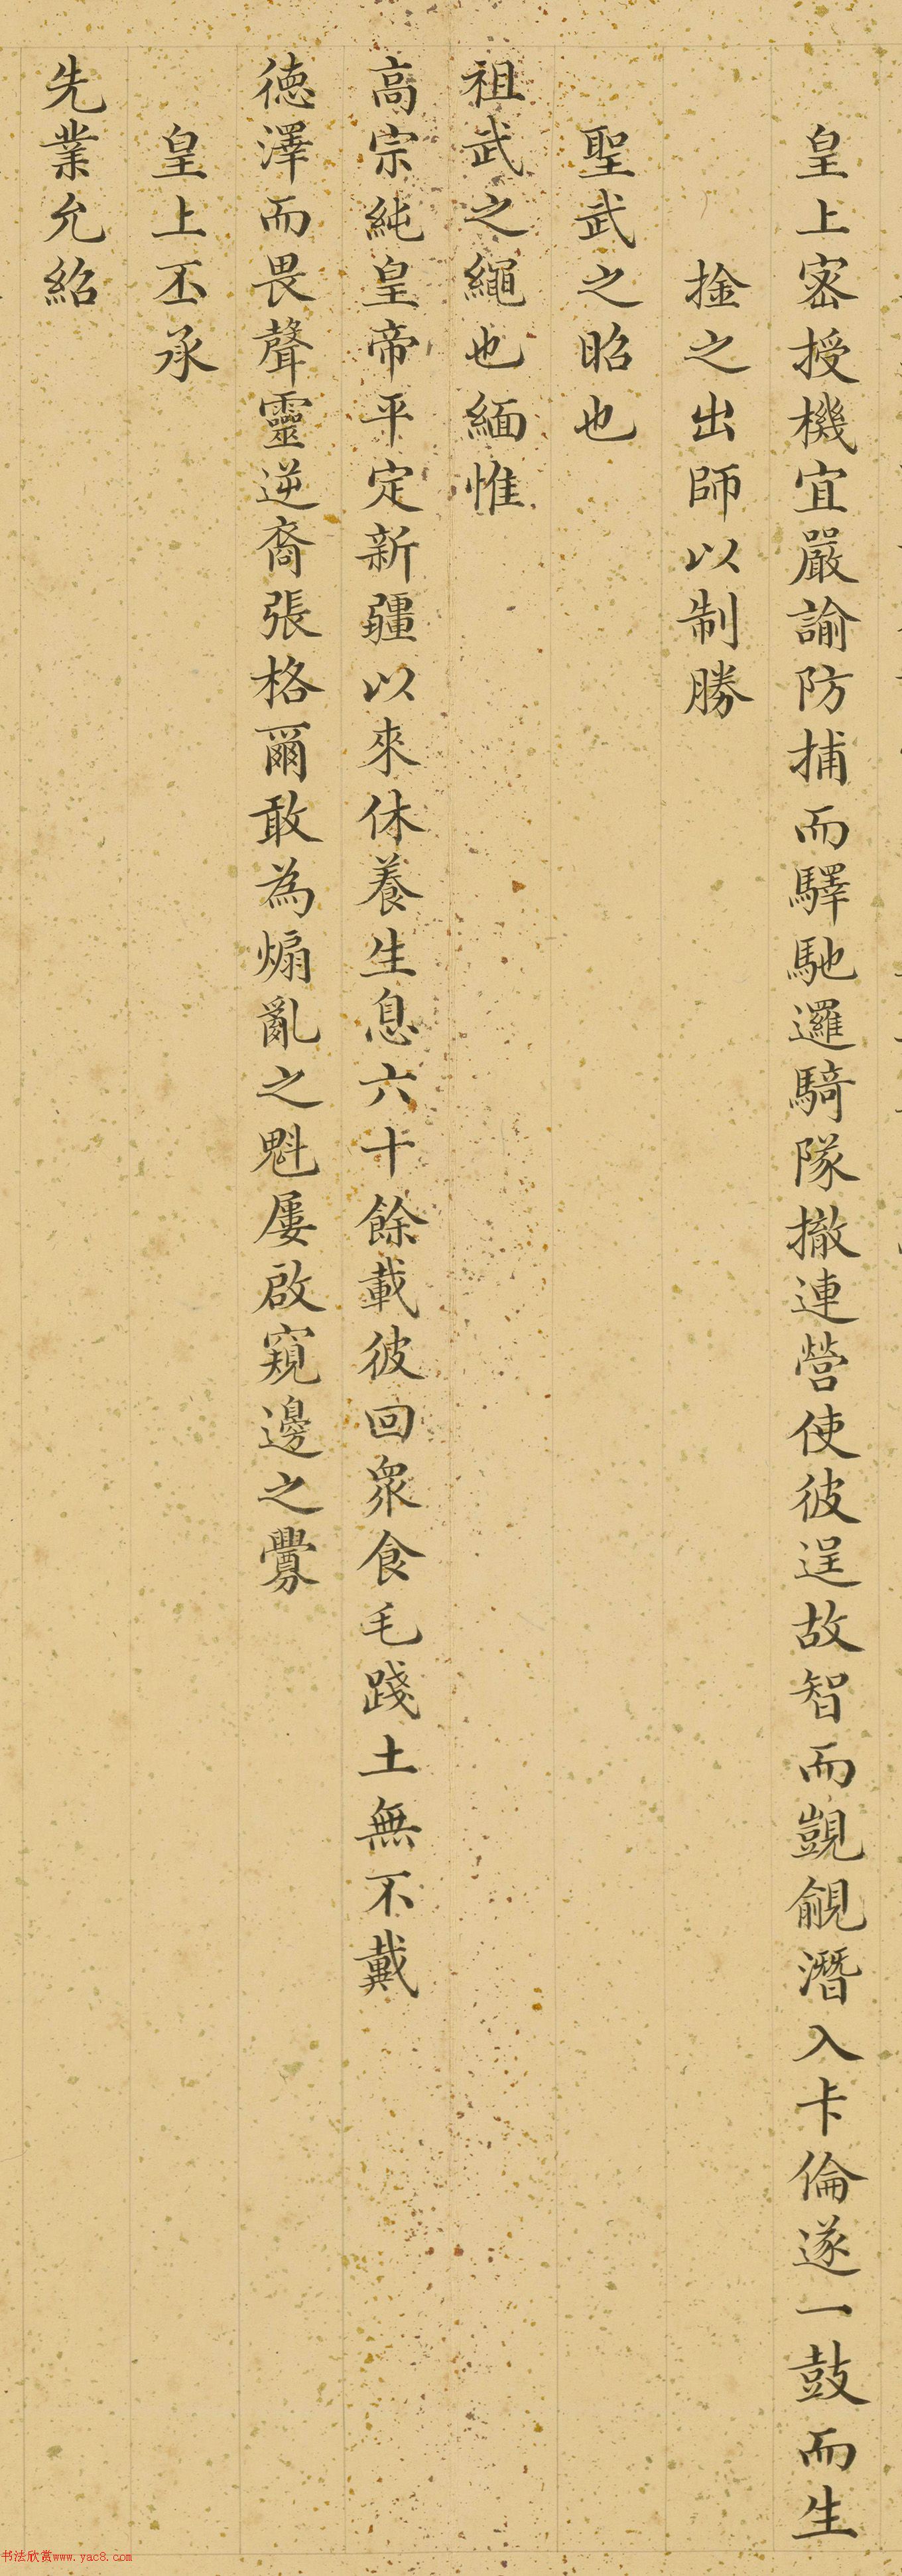 皇上密授機宜嚴諭防捕而驛馳邏騎隊撤連營使彼逞故智而覬覦潛入卡倫遂一鼓而生
捦之出師以制勝
聖武之昭也
祖武之繩也緬惟
高宗純皇帝平定新疆以來休養生息六十餘載彼回眾食毛踐土無不戴
德澤而畏聲靈逆裔張格爾敢為煽亂之魁屢啟窺邊之釁
皇上丕承
先業允紹
书法欣赏www.yac8.com